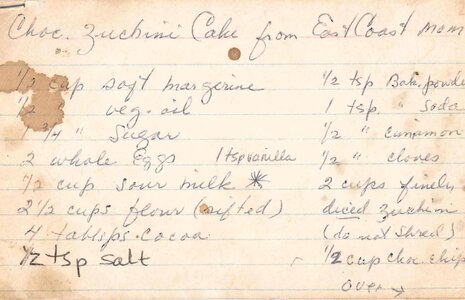 Choc. Zuchini Cake from East Coast Mom
1/2 cup soft margerine
1/2 " veg. oil
1 3/4 " Sugar
2 whole Eggs 1 tsp vanilla
1/2 cup sour milk *
2 1/2 cups flour (sifted)
4 tablsps. cocoa
1/2 tsp salt
1/2 tsp Bak. powde
1 tsp. " Soda
1/2 " cinnamon
1/2 " cloves
2 cups finely
diced zuchini
(do not shred)
1/2 cup choc. chip
over →